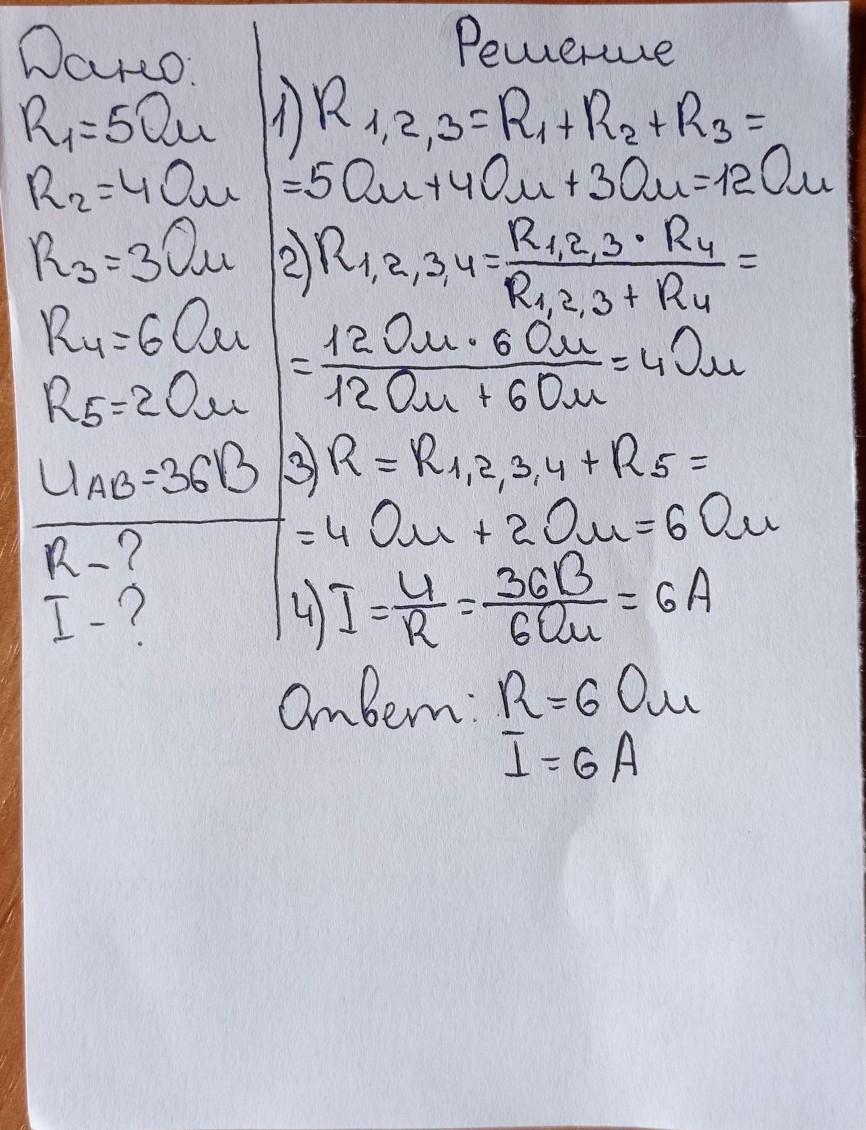 Дано:
R1=5Ом
R2=4Ом
R3=3Ом
R4=6Ом
R5=2Ом
UAB=36В
R-?
I-?
Решение
1) R1,2,3=R1+R2+R3=
=5Ом+4Ом+3Ом=12Ом
2) R1,2,3,4=
R1,2,3·R4
R1,2,3+R4
=
=
12Ом·6Ом
12Ом+6Ом
=4Ом
3) R=R1,2,3,4+R5=
=4Ом+2Ом=6Ом
4) I=U/R=36В/6Ом=6А
Ответ: R=6Ом
I=6А